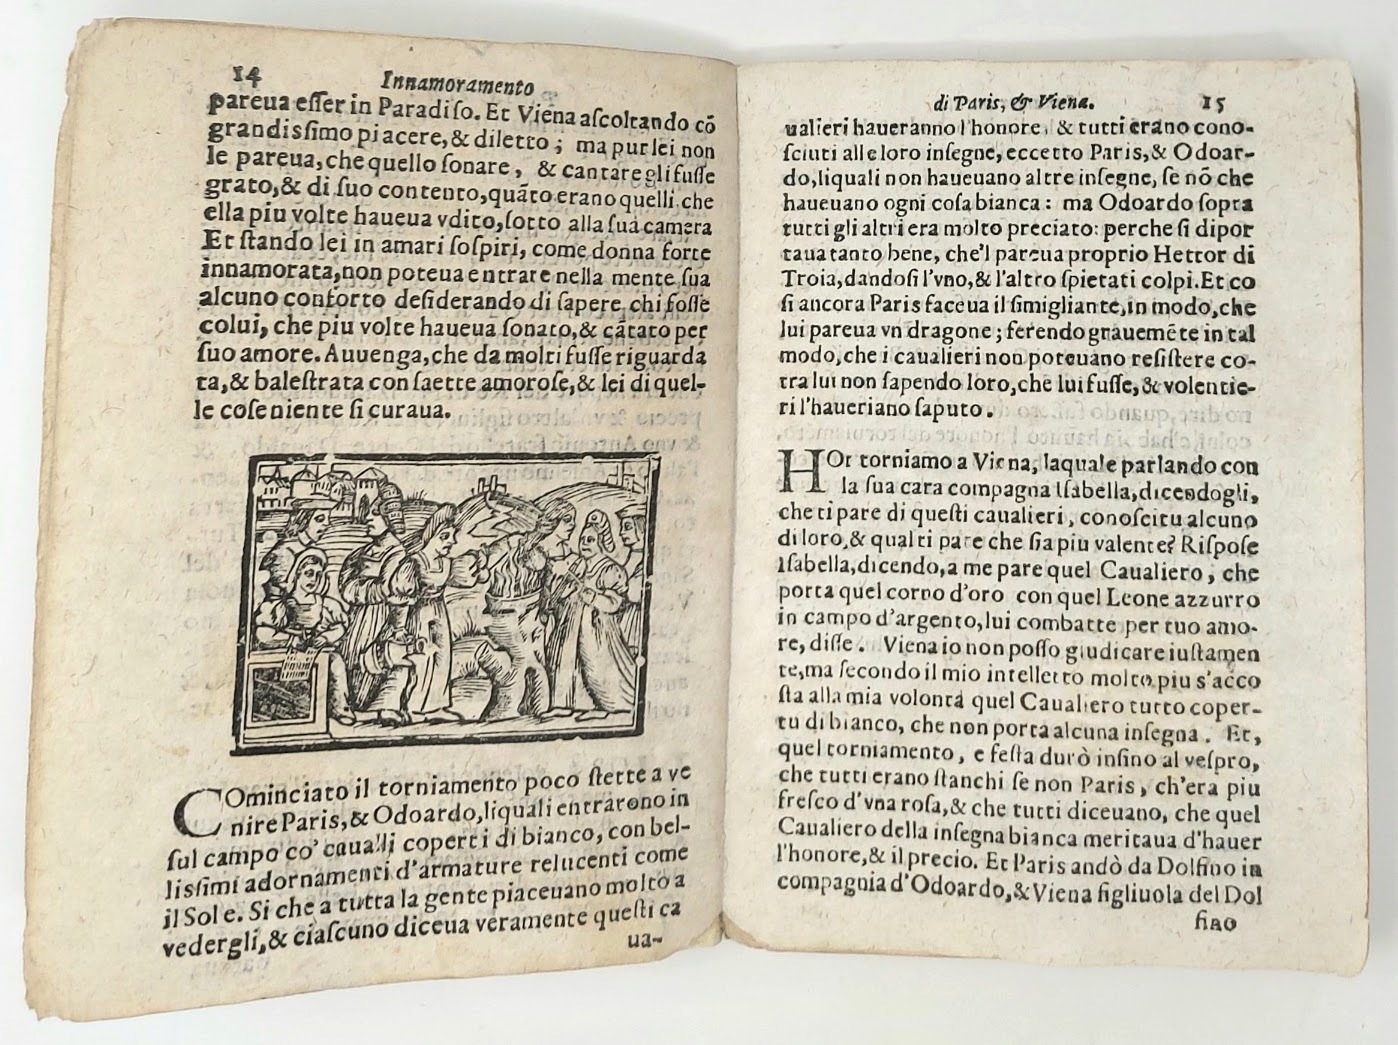 14 Innamoramento
pareua eſſer in Paradiſo. Et Viena aſcoltando cõ
grandiſſimo piacere, & diletto; ma pur lei non
le pareua, che quello ſonare, & cantare gli fuſſe
grato, & di ſuo contento, quãto erano quelli che
ella piu volte haueua vdito, ſotto alla ſua camera
Et ſtando lei in amari ſoſpiri, come donna forte
innamorata, non poteua entrare nella mente ſua
alcuno conforto deſiderando di ſapere chi foſſe
colui, che piu volte haueua ſonato, & cãtato per
ſuo amore. Auuenga, che da molti fuſſe riguarda
ta, & baleſtrata con ſaette amoroſe, & lei di quel-
le coſe niente ſi curaua.
COminciato il torniamento poco ſtette a ve
nire Paris, & Odoardo, liquali entrarono in
ſul campo co' caualli coperti di bianco, con bel-
liſſimi adornamenti d'armature relucenti come
il Sole. Si che a tutta la gente piaceuano molto a
vedergli, & ciaſcuno diceua veramente queſti ca
ua-
di Paris, & Viena. 15
ualieri haueranno l'honore, & tutti erano cono-
ſciuti alle loro inſegne, eccetto Paris, & Odoar-
do, liquali non haueuano altre inſegne, ſe nõ che
haueuano ogni coſa bianca: ma Odoardo ſopra
tutti gli altri era molto preciato: perche ſi dipor
taua tanto bene, che'l pareua proprio Hettor di
Troia, dandoſi l'vno, & l'altro ſpietati colpi. Et co
ſi ancora Paris faceua il ſimigliante, in modo, che
lui pareua vn dragone; ferendo grauemẽte in tal
modo, che i caualieri non poteuano reſiſtere co-
tra lui non ſapendo loro, che lui fuſſe, & volentie-
ri l'haueriano ſaputo.
HOr torniamo a Viena, laquale parlando con
la ſua cara compagna Iſabella, dicendogli,
che ti pare di queſti caualieri, conoſci tu alcuno
di loro, & qual ti pare che ſia piu valente? Riſpoſe
Iſabella, dicendo, a me pare quel Caualiero, che
porta quel corno d'oro con quel Leone azzurro
in campo d'argento, lui combatte per tuo amo-
re, diſſe. Viena io non poſſo giudicare iuſtamen
te, ma ſecondo il mio intelletto molto piu s'acco
ſta alla mia volontà quel Caualiero tutto coper-
tu di bianco, che non porta alcuna inſegna. Et,
quel torniamento, e feſta durò inſino al veſpro,
che tutti erano ſtanchi ſe non Paris, ch'era piu
freſco d'vna roſa, & che tutti diceuano, che quel
Caualiero della inſegna bianca meritaua d'hauer
l'honore, & il precio. Et Paris andò da Dolfino in
compagnia d'Odoardo, & Viena figliuola del Dol
fino